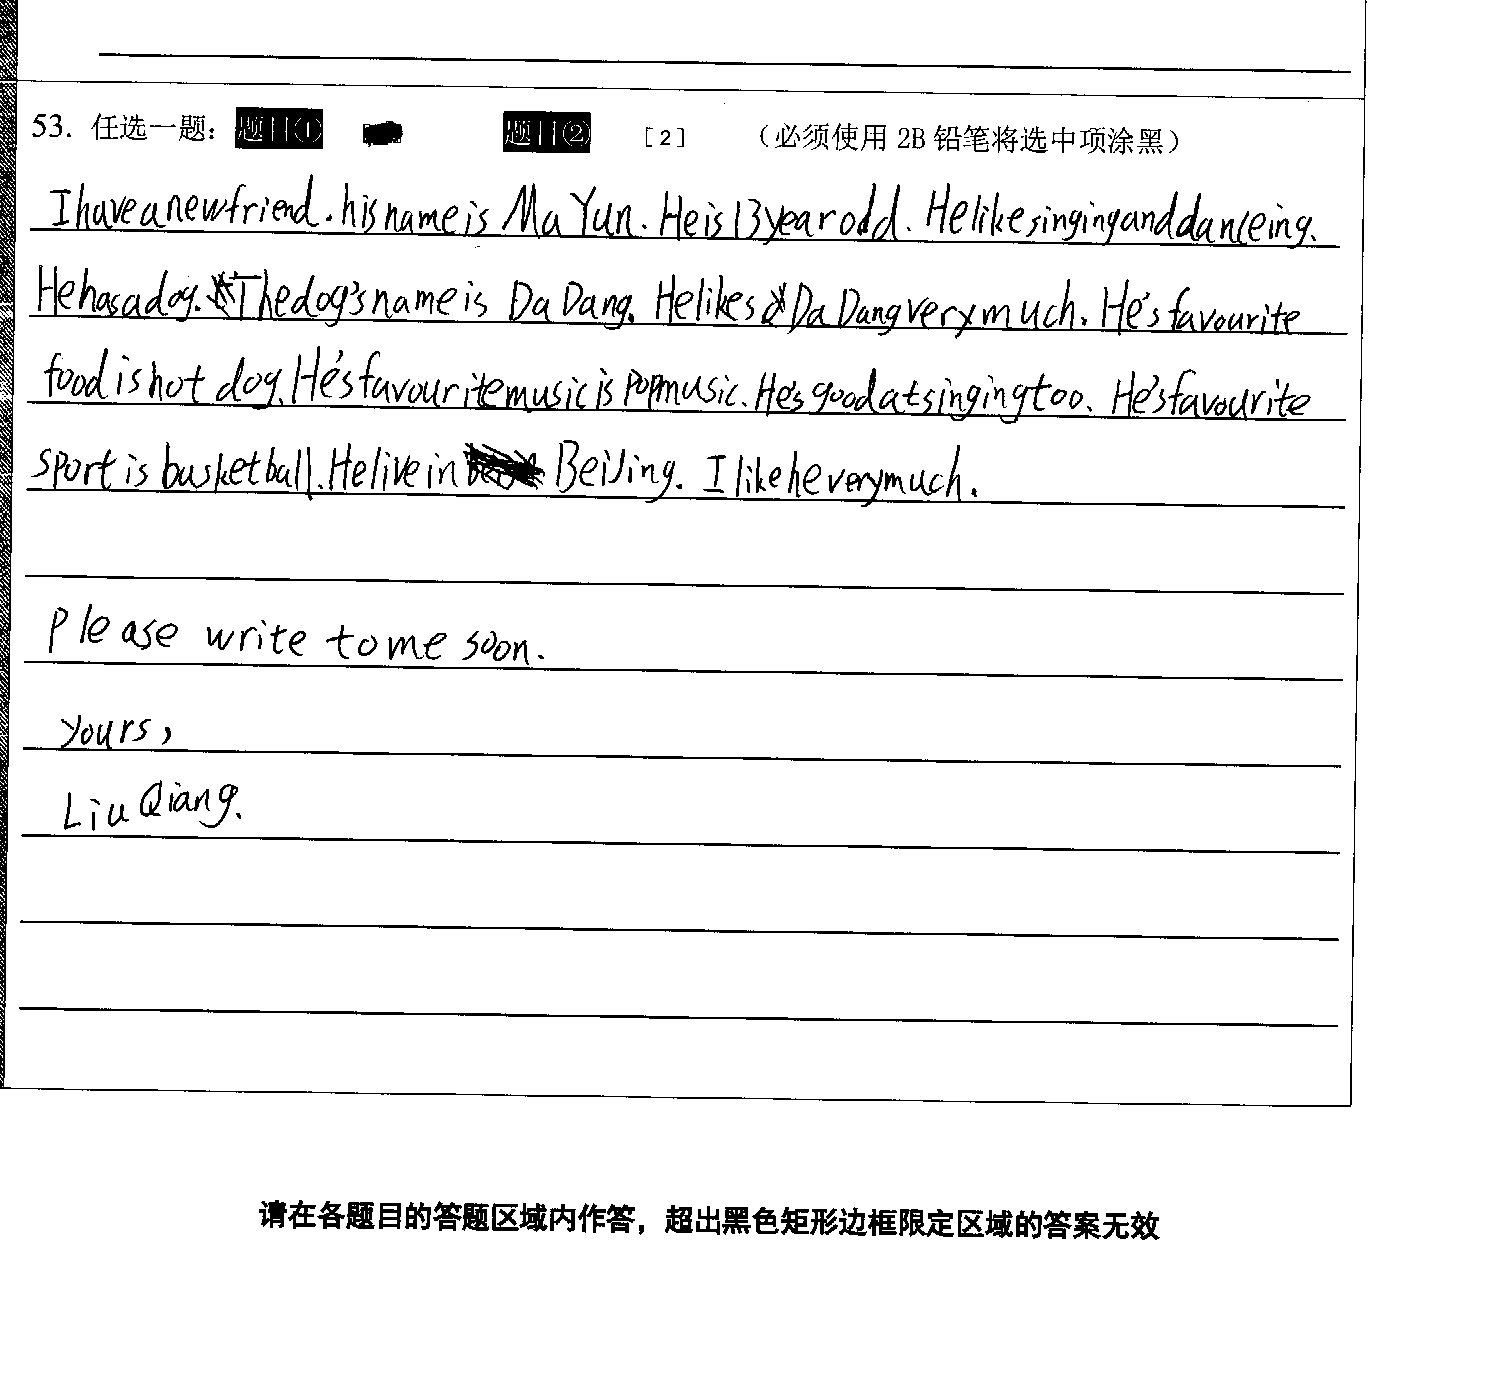 53. 任选一题： 题目① 题目② [2] （必须使用 2B 铅笔将选中项涂黑）
I have a new friend. his name is Ma Yun. He is 13 year odd. He like singing and danceing.
He has a dog. The dog's name is Da Dang. He likes Da Dang very much. He's favourite
food is hot dog. He's favourite music is Pop music. He's good at singing too. He's favourite
sport is basketball. He live in BeiJing. I like he very much.
Please write to me soon.
yours,
Liu Qiang.
请在各题目的答题区域内作答，超出黑色矩形边框限定区域的答案无效